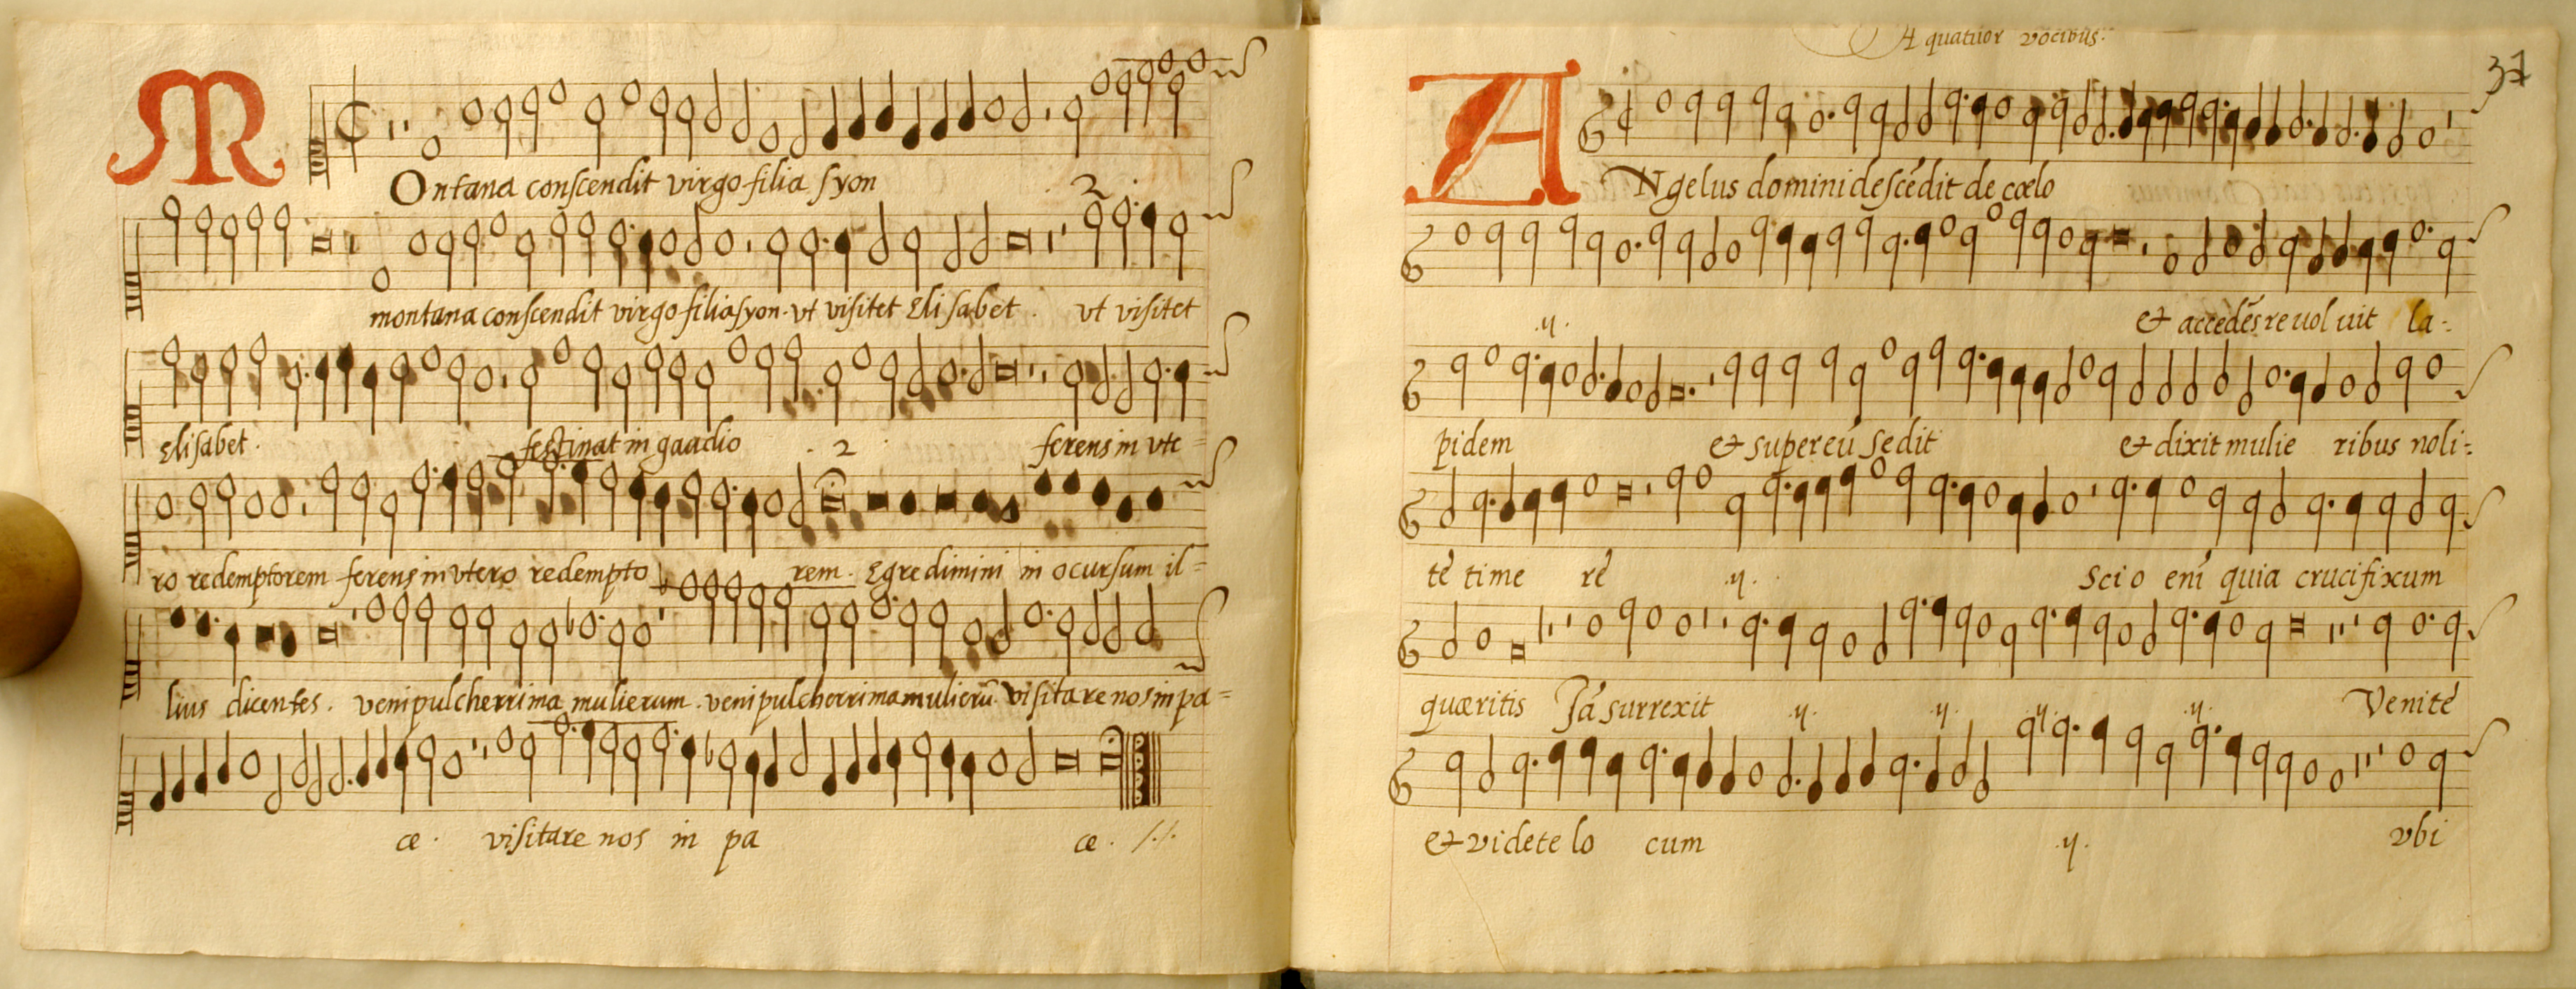 MOntana conscendit virgo filia syon . 2 .
montana conscendit virgo filia syon. vt visitet Elisabet . vt visitet
Elisabet . festinat in gaudio . 2 . ferens in vte =
ro redemptorem ferens in vtero redempto rem . Egredimini in ocursum il=
lius dicentes . veni pulcherrima mulierum . veni pulcherrima mulierū visitare nos in pa=
ce . visitare nos in pa ce . /./.
A quatuor vocibus.
37
ANgelus domini descēdit de cœlo
.ij. et accedēs reuoluit la=
pidem et super eū sedit et dixit mulie ribus noli=
te time re .ij. Scio eni quia crucifixum
quæritis Jā surrexit .ij. .ij. .ij. .ij. Venite
et videte lo cum .ij. vbi